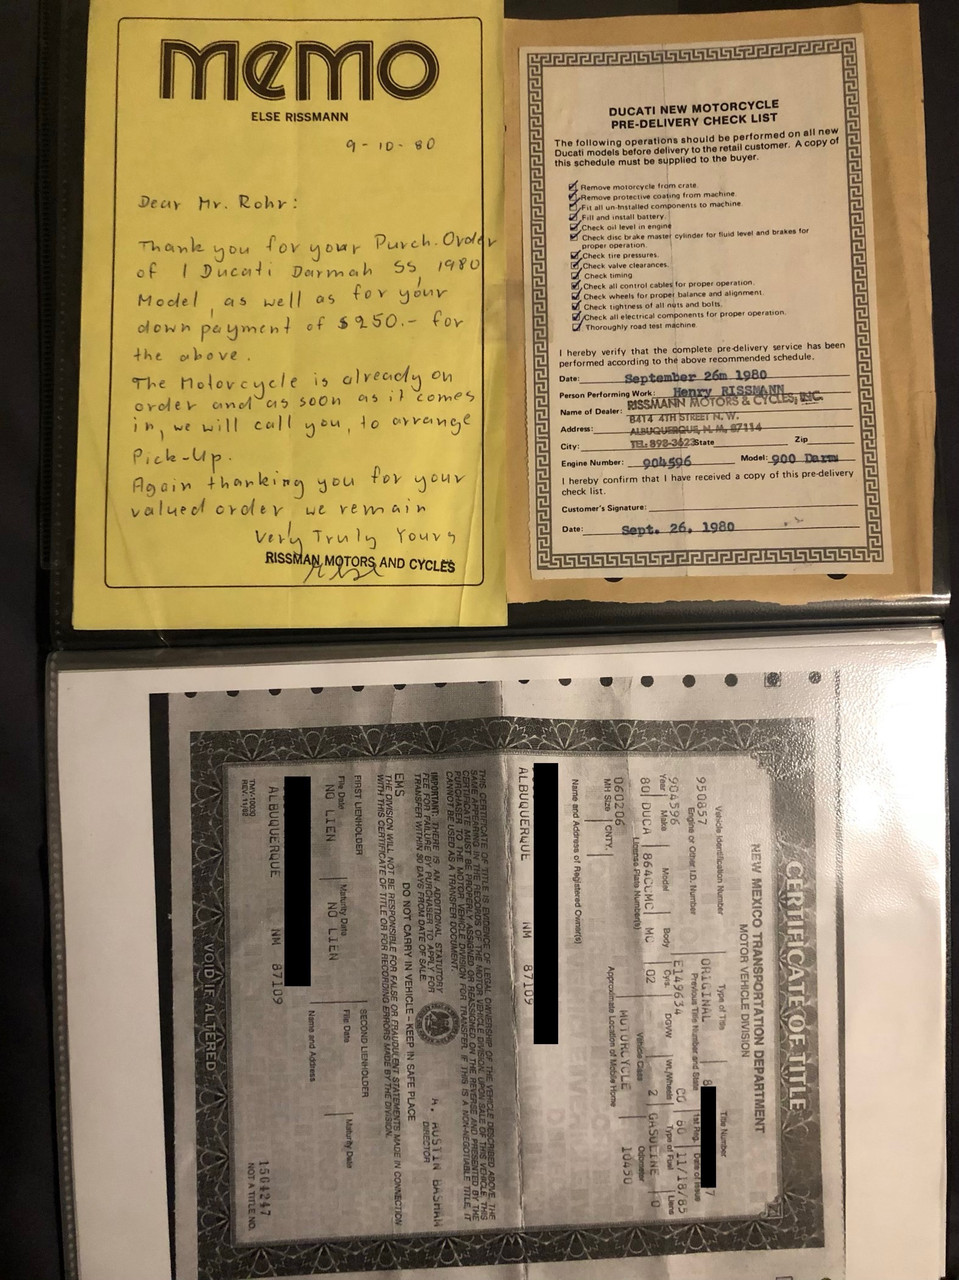 memo
ELSE RISSMANN
9-10-80
Dear Mr. Rohr:
Thank you for your Purch. Order
of 1 Ducati Darmah SS, 1980
Model, as well as for your
down payment of $250.- for
the above.
The Motorcycle is already on
order and as soon as it comes
in, we will call you, to arrange
Pick-Up.
Again thanking you for your
valued order we remain
Very Truly Yours
RISSMAN MOTORS AND CYCLES
DUCATI NEW MOTORCYCLE
PRE-DELIVERY CHECK LIST
The following operations should be performed on all new
Ducati models before delivery to the retail customer. A copy of
this schedule must be supplied to the buyer.
Remove motorcycle from crate.
Remove protective coating from machine.
Fit all un-installed components to machine.
Fill and install battery.
Check oil level in engine.
Check disc brake master cylinder for fluid level and brakes for
proper operation.
Check tire pressures.
Check valve clearances.
Check timing.
Check all control cables for proper operation.
Check wheels for proper balance and alignment.
Check tightness of all nuts and bolts.
Check all electrical components for proper operation.
Thoroughly road test machine.
I hereby verify that the complete pre-delivery service has been
performed according to the above recommended schedule.
Date: September 26m 1980
Person Performing Work: Henry RISSMANN
Name of Dealer: RISSMANN MOTORS & CYCLES, INC.
Address: 8414 4TH STREET N. W.
ALBUQUERQUE, N. M. 87114
City: TEL: 898-3623 State Zip
Engine Number: 904596 Model: 900 Darm
I hereby confirm that I have received a copy of this pre-delivery
check list.
Customer's Signature:
Date: Sept. 26, 1980
CERTIFICATE OF TITLE
NEW MEXICO TRANSPORTATION DEPARTMENT
MOTOR VEHICLE DIVISION
Vehicle Identification Number Type of Title Title Number
950857 ORIGINAL 8 7
Engine or Other I.D. Number Previous Title Number and State 1st Reg. Date of Issue
904596 E149634 CO 80 11/18/85
Year Make Model Body Cyls. DGVW Wt./Wheels Type of Fuel Liens
80 DUCA 864CCMC MC 02 2 GASOLINE 0
License Plate Number(s) Vehicle Class Odometer
060206 MOTORCYCLE 10450
MH Size CNTY. Approximate Location of Mobile Home
Name and Address of Registered Owner(s)
ALBUQUERQUE NM 87109
THIS CERTIFICATE OF TITLE IS EVIDENCE OF LEGAL OWNERSHIP OF THE VEHICLE DESCRIBED ABOVE, THE
SAME APPEARING IN THE RECORDS OF THE MOTOR VEHICLE DIVISION. UPON SALE OF THIS VEHICLE, THIS
CERTIFICATE MUST BE PROPERLY ASSIGNED OR REASSIGNED ON THE REVERSE AND PRESENTED BY THE
PURCHASER TO THE MOTOR VEHICLE DIVISION FOR TRANSFER. IF THIS IS A NON-NEGOTIABLE TITLE, IT
CANNOT BE USED AS A TRANSFER DOCUMENT.
IMPORTANT: THERE IS AN ADDITIONAL STATUTORY
FEE FOR FAILURE BY PURCHASER TO APPLY FOR
TRANSFER WITHIN 30 DAYS FROM DATE OF SALE.
A. AUSTIN BASHAM
DIRECTOR
DO NOT CARRY IN VEHICLE - KEEP IN SAFE PLACE
EMS
THE DIVISION WILL NOT BE RESPONSIBLE FOR FALSE OR FRAUDULENT STATEMENTS MADE IN CONNECTION
WITH THIS CERTIFICATE OF TITLE OR FOR RECORDING ERRORS MADE BY THE DIVISION.
FIRST LIENHOLDER SECOND LIENHOLDER
File Date Maturity Date File Date Maturity Date
NO LIEN NO LIEN
Name and Address
ALBUQUERQUE NM 87109
1564247
NOT A TITLE NO.
VOID IF ALTERED